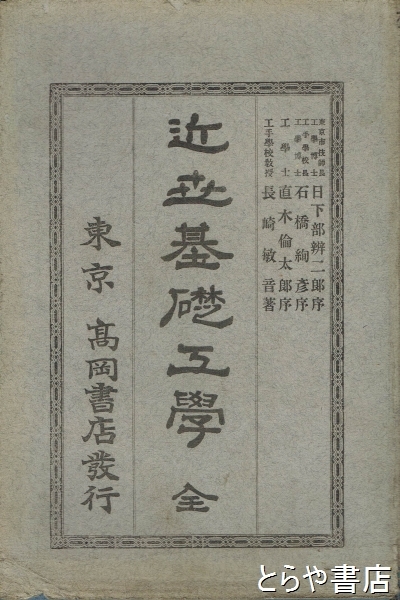 東京市技師長
工學博士 日下部辨二郎序
工手學校長
工學博士 石橋絢彥序
工學士 直木倫太郎序
工手學校教授 長崎敏音著
近世基礎工學 全
東京 髙岡書店發行
とらや書店